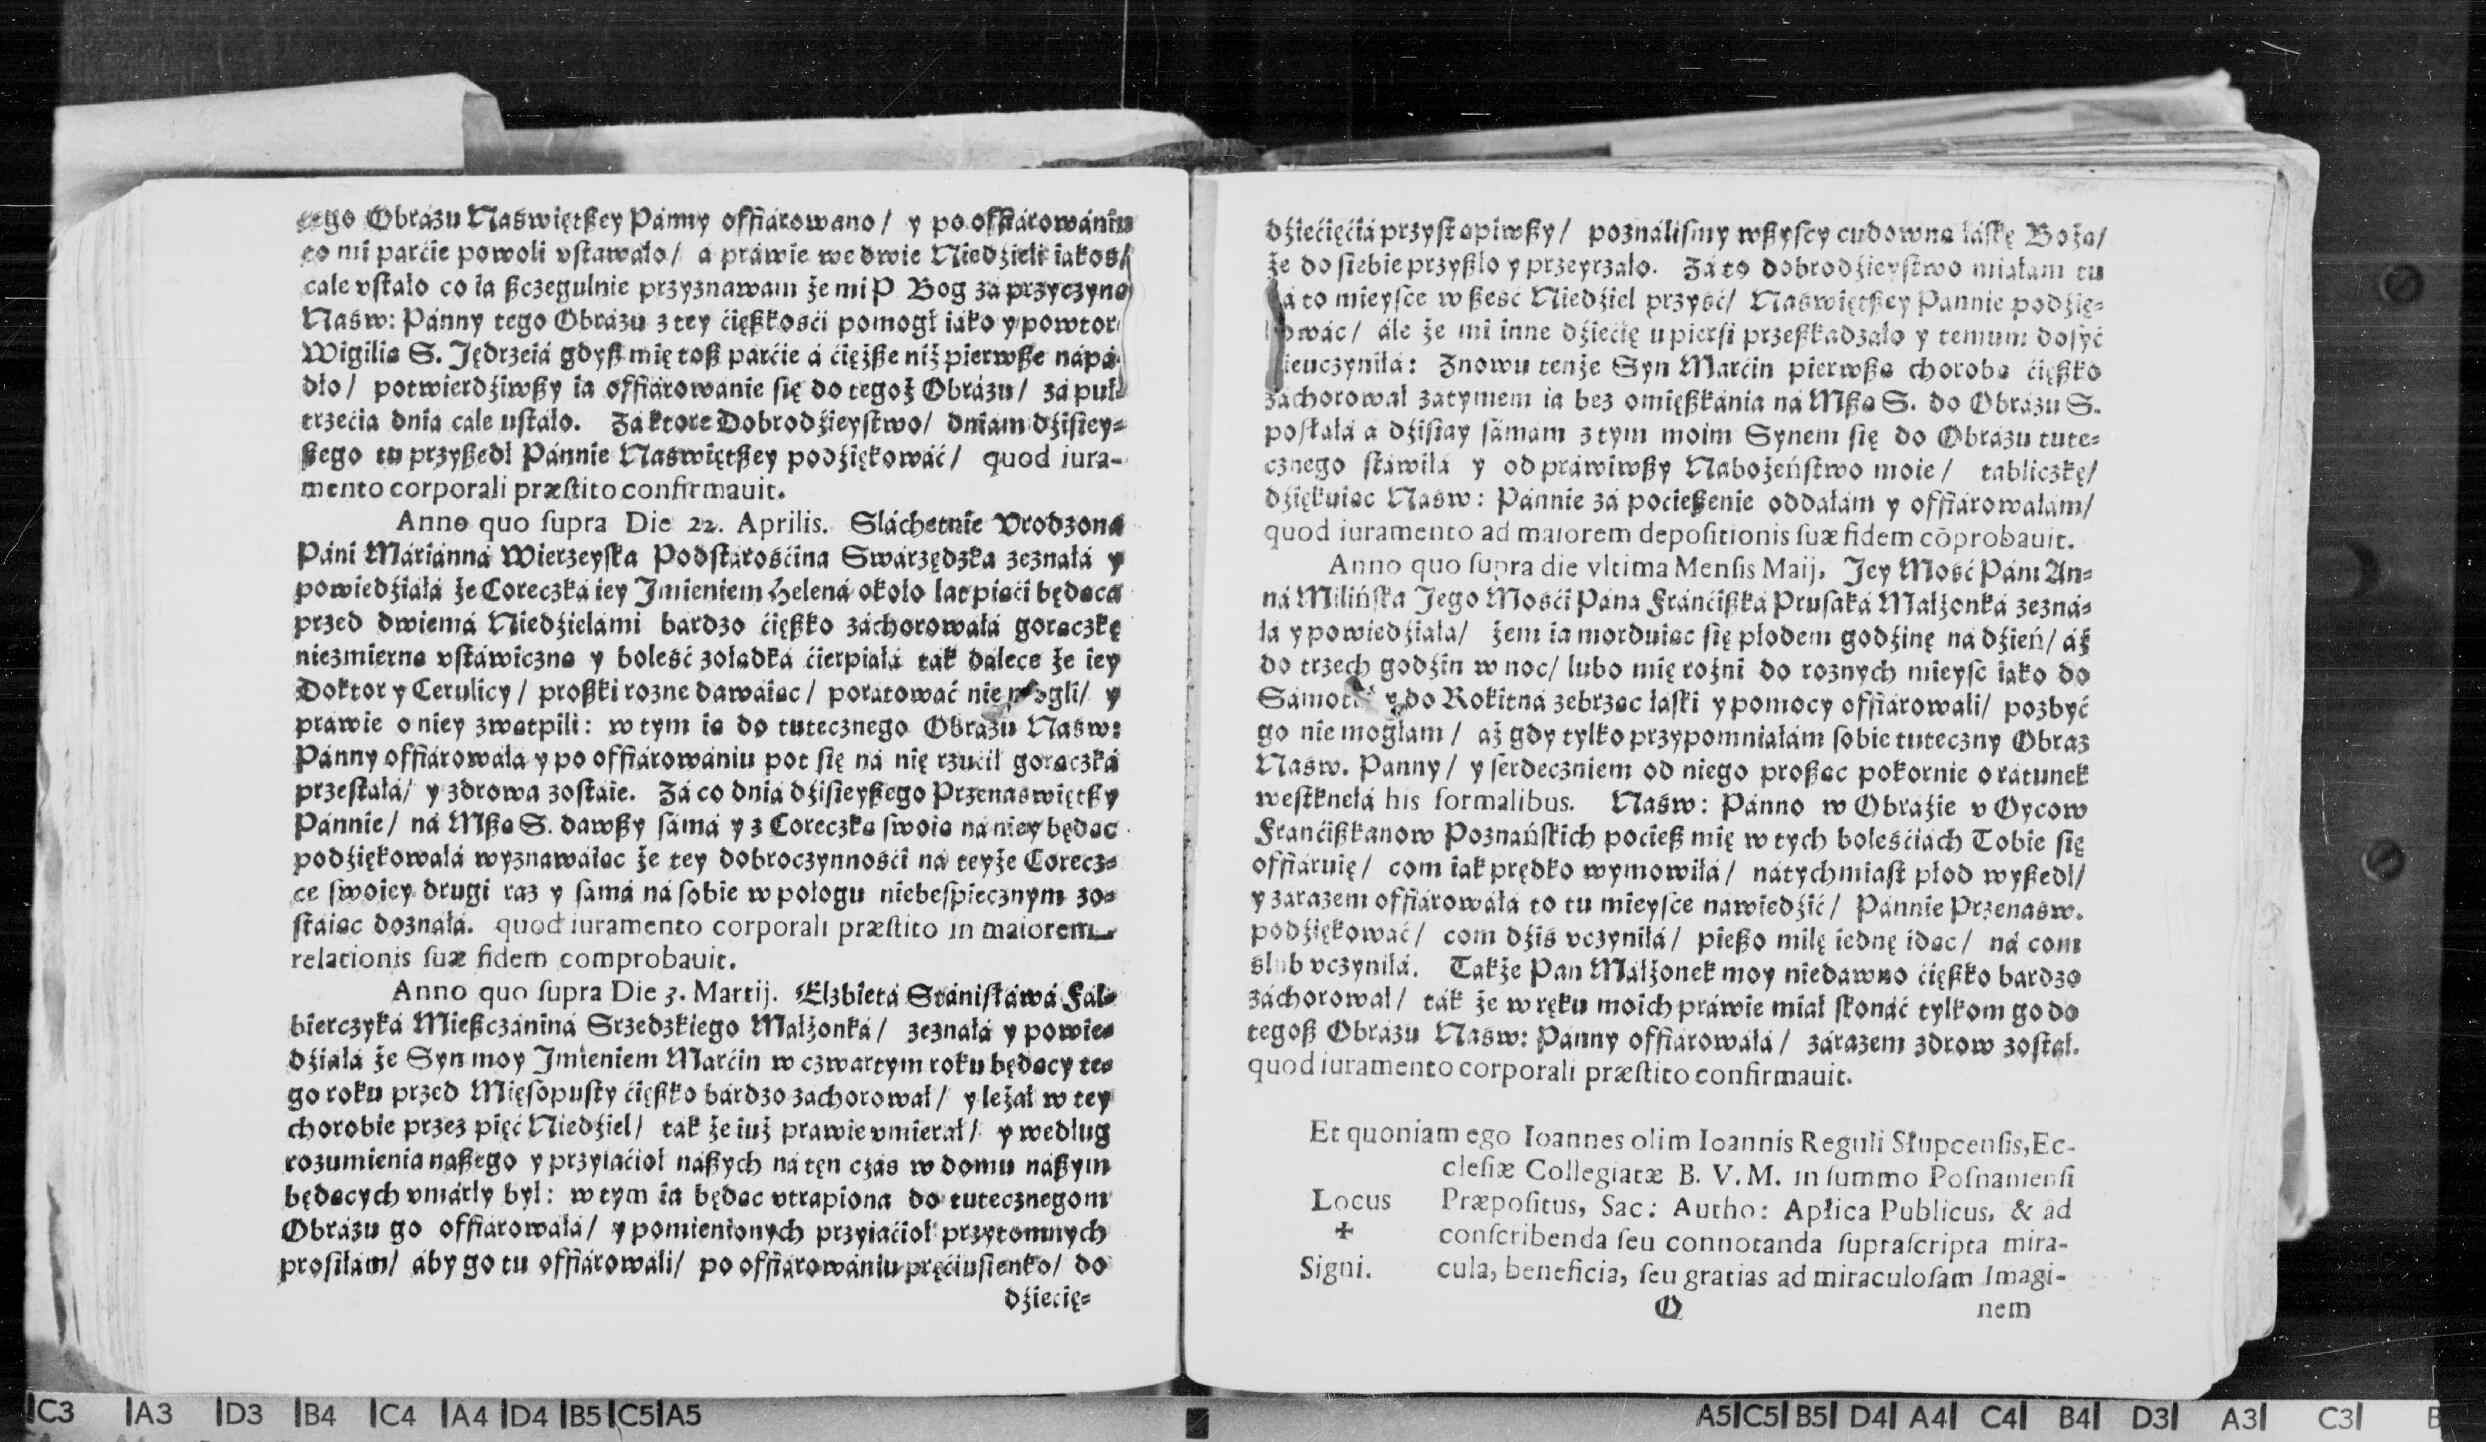 tego Obrázu Naświętßey Pánny offiárowano/ y po offiárowániu
to mi parćie powoli vstawało/ a práwie we dwie Niedźieli iakoś/
cale vstało co ia ßczegulnie przyznawam że mi P. Bog zá przyczyną
Naśw: Pánny tego Obrázu z tey ćięßkośći pomogł iáko y powtor
Wigilią S. Jędrzeiá gdyß mię toß parćie á ćięższe niż pierwße nápá-
dło/ potwierdźiwßy ia offiárowanie się do tegoż Obrázu/ zá puł-
trzećia dnia cale ustało. Zá ktore Dobrodźieystwo/ dniam dźisiey-
ßego tu przyßedł Pánnie Naświętßey podźiękowáć/ quod iura-
mento corporali præstito confirmauit.
Anno quo supra Die 22. Aprilis. Sláchetnie Vrodzona
Páni Máriánná Wierzeyska Podstárośćina Swárzędzka zeznáłá y
powiedźiáłá że Coreczká iey Jmieniem Helená około lat piąći będąca
przed dwiemá Niedźielámi bárdzo ćięßko záchorowáłá gorączkę
niezmierną vstáwiczną y boleść żołądká ćierpiáłá ták dálece że iey
Doktor y Cerulicy/ proßki rozne dawáiąc/ porátowáć nie mogli/ y
práwie o niey zwątpili: w tym ią do tutecznego Obrázu Naśw:
Pánny offiárowáłá y po offiárowániu pot się ná nię rzućił gorączká
przestáłá/ y zdrowa zostáie. Zá co dniá dźisieyßego Przenaświętßy
Pánnie/ ná Mßą S. dawßy sámá y z Coreczką swoią ná niey będąc
podźiękowáłá wyznawáiąc że tey dobroczynnośći ná teyże Corecz-
ce swoiey drugi raz y sámá ná sobie w połogu niebespiecznym zo-
stáiąc doznáłá. quod iuramento corporali præstito in maiorem
relationis suæ fidem comprobauit.
Anno quo supra Die 3. Martij. Elżbietá Stánisłáwá Fál-
bierczyká Mießczániná Srzedzkiego Małżonká/ zeznáłá y powie-
dźiáłá że Syn moy Jmieniem Marćin w czwartym roku będący te-
go roku przed Mięsopusty ćięßko bárdzo záchorował/ y leżał w tey
chorobie przez pięć Niedźiel/ ták że iuż prawie vmierał/ y według
rozumienia nàßego y przyiaćioł náßych ná ten czás w domu náßym
będących vmárły był: w tym ia będąc vtrapiona do tutecznegom
Obrázu go offiárowáłá/ y pomienionych przyiaćioł przytomnych
prosiłám/ áby go tu offiárowáli/ po offiárowániu pręćiusieńko/ do
dźiecię-
dźiećięćiá przystąpiwßy/ poználismy wßyscy cudowną łáskę Bożą/
że do siebie przyßło y przeyrzáło. Zá to dobrodźieystwo miáłam tu
ná to mieysce w ßeść Niedźiel przyść/ Naświętßey Pánnie podźię-
kowáć/ ále że mi inne dźiećię u piersi przeßkadzáło y temum dosyć
nieuczyniłá: Znowu tenże Syn Marćin pierwßą chorobą ćięßko
záchorował zátymem ia bez omięßkánia ná Mßą S. do Obrázu S.
posłáłá a dźiśiay sámám z tym moim Synem się do Obrázu tute-
cznego stáwiłá y odpráwiwßy Nabożeństwo moie/ tabliczkę/
dźiękuiąc Naśw: Pánnie zá pocießenie oddáłám y offiárowáłám/
quod iuramento ad maiorem depositionis suæ fidem cōprobauit.
Anno quo supra die vltima Mensis Maij. Jey Mość Páni An-
ná Milińska Jego Mośći Páná Fránćißká Prusaká Małżonká zezná-
łá y powiedźiáłá/ żem ia morduiąc się płodem godźinę ná dźień/ áż
do trzech godźin w noc/ lubo mię rożni do roznych mieysc iáko do
y do Rokitná żebrząc łáski y pomocy offiárowáli/ pozbyć
go nie mogłám/ áż gdy tylko przypomniáłám sobie tuteczny Obraz
Naśw. Pánny/ y serdeczniem od niego proßąc pokornie o rátunek
westknęłá his formalibus. Naśw: Pánno w Obráźie v Oycow
Fránćißkanow Poznáńskich pocieß mię w tych boleśćiách Tobie się
offiáruię/ com iák prędko wymowiłá/ nátychmiast płod wyßedł/
y zarázem offiárowáłá to tu mieysce nawiedźić/ Pánnie Przenaśw.
podźiękowáć/ com dźiś vczyniłá/ pießo milę iednę idąc/ ná com
ślub vczyniłá. Tákże Pan Małżonek moy niedawno ćięßko bárdzo
záchorował/ ták że w ręku moich práwie miał skonáć tylkom go do
tegoß Obrázu Naśw: Pánny offiárowáłá/ zárazem zdrow został.
quod iuramento corporali præstito confirmauit.
Et quoniam ego Ioannes olim Ioannis Reguli Słupcensis, Ec-
clesiæ Collegiatæ B. V. M. in summo Posnaniensi
Locus Præpositus, Sac: Autho: Aplica Publicus, & ad
✠ conscribenda seu connotanda suprascripta mira-
Signi. cula, beneficia, seu gratias ad miraculosam Imagi-
Q nem
C3 A3 D3 B4 C4 A4 D4 B5 C5 A5
A5 C5 B5 D4 A4 C4 B4 D3 A3 C3 B